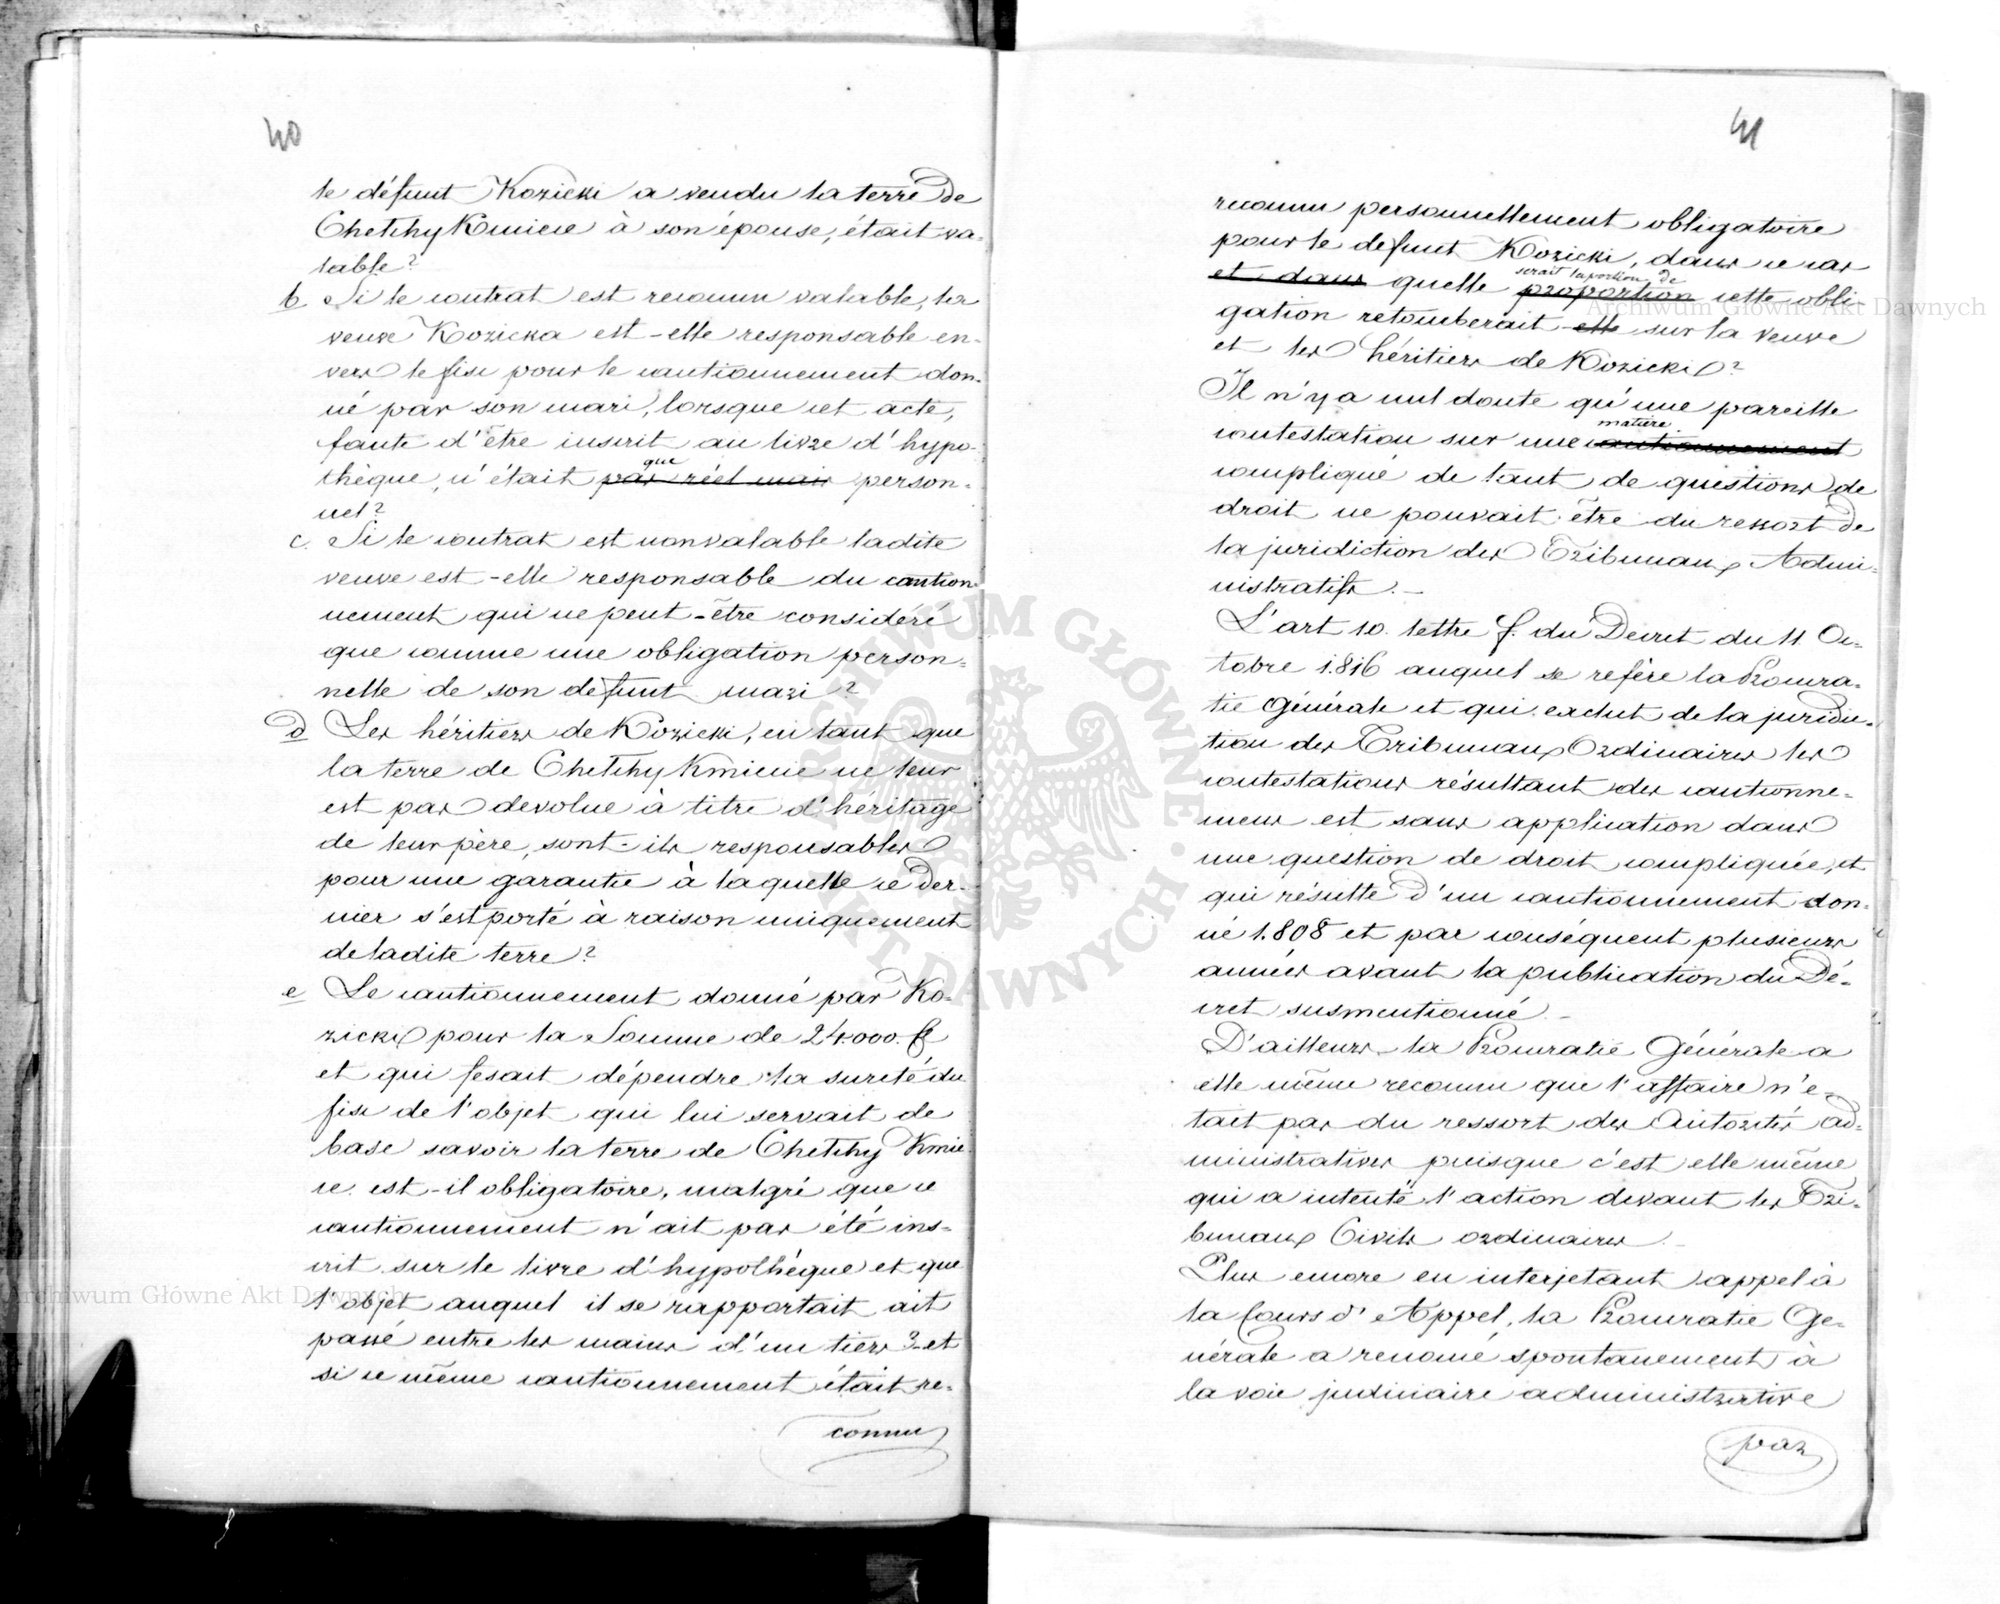 40
le défunt Kozicki a vendu la terre de
Chetchy Kmiecie à son épouse, était va-
lable?
b Si le contrat est reconnu valable, la
veuve Kozicka est-elle responsable en-
vers le fisc pour le cautionnement don-
né par son mari, lorsque cet acte,
faute d'être inscrit au livre d'hypo-
que
thèque, n'était pas réel mais person-
nel?
c. Si le contrat est nonvalable ladite
veuve est-elle responsable du caution-
nement qui ne peut-être considéré
que comme une obligation person-
nelle de son défunt mari?
d Les héritiers de Kozicki, en tant que
la terre de Chetchy Kmiecie ne leur
est pas devolue à titre d'héritage
de leur père, sont-ils responsables
pour une garantie à laquelle ce der-
nier s'est porté à raison uniquement
de ladite terre?
e Le cautionnement donné par Ko-
zicki pour la Somme de 24.000. fl
et qui fesait dépendre la sureté du
fisc de l'objet qui lui servait de
base savoir la terre de Chetchy Kmie
cie est-il obligatoire, malgré que ce
cautionnement n'ait pas été ins-
crit sur le livre d'hypothéque et que
l'objet auquel il se rapportait ait
passé entre les mains d'un tiers? et
si ce même cautionnement était re-
connu
41
reconnu personnellement obligatoire
pour le defunt Kozicki, dans ce cas
serait la portion de
et dans quelle proportion cette obli-
gation retomberait elle sur la veuve
et les héritiers de Kozicki?
Il n'y a nul doute qu'une pareille
matière
contestation sur une cautionnement
compliqué de tant de questions de
droit ne pouvait être du ressort de
la juridiction des Tribunaux Admi-
nistratifs.-
L'art 10. lettre f. du Decret du 11 Oc-
tobre 1.816 auquel se refère la Procura-
tie Générale et qui exclut de la juridic-
tion des Tribunaux Ordinaires les
contestations résultant des cautionne-
mens est sans application dans
une question de droit compliquée, et
qui résulte d'un cautionnement don-
né 1.808 et par conséquent plusieurs
années avant la publication du Dé-
cret susmentionné.-
D'ailleurs la Procuratie Générale a
elle même reconnu que l'affaire n'e-
tait pas du ressort des Autorités ad-
ministratives puisque c'est elle même
qui a intenté l'action devant les Tri-
bunaux Civils ordinaires.-
Plus encore en interjetant appel à
la Cours d'Appel, la Procuratie Ge-
nérale a renoncé spontanement à
la voie judiciaire administrative
par
Archiwum Główne Akt Dawnych
Archiwum Główne Akt Dawnych
ARCHIWUM GŁÓWNE · AKT DAWNYCH ·